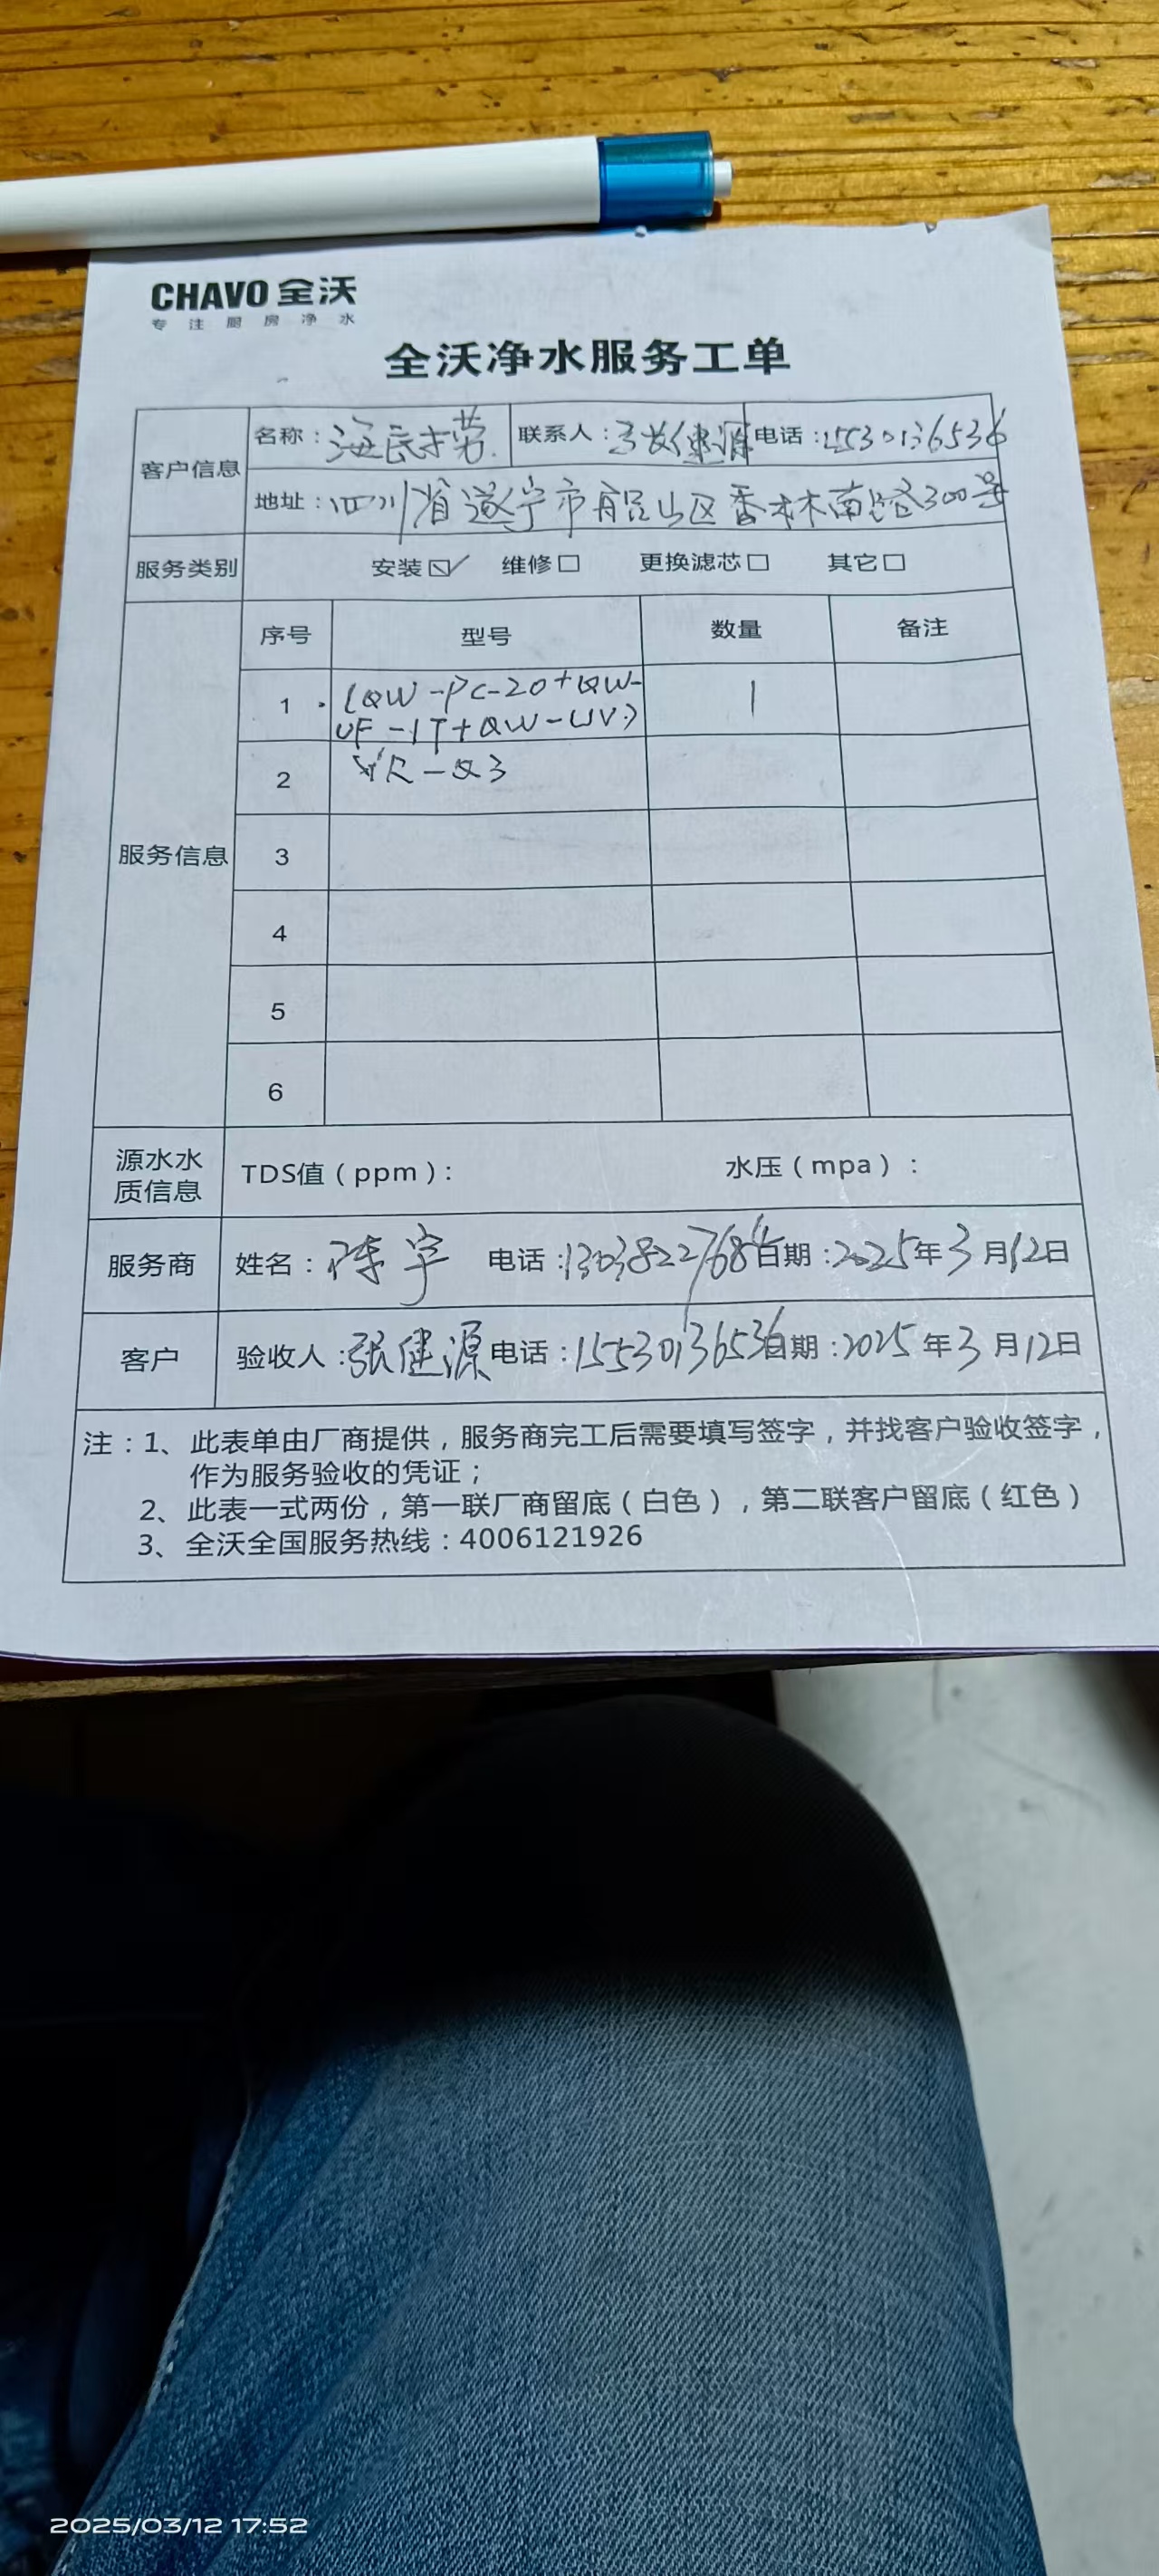 CHAVO 全沃
专注厨房净水
全沃净水服务工单
客户信息 名称： 联系人：张健源 电话：15530136536
地址：四川省遂宁市船山区香林南路300号
服务类别 安装☑ 维修☐ 更换滤芯☐ 其它☐
服务信息 序号 型号 数量 备注
1 (QW-PC-20+QW- 1
UF-1T+QW-UV)
2 YR-Q3
3
4
5
6
源水水质信息 TDS值（ppm）： 水压（mpa）：
服务商 姓名：陈宇 电话：13038227684 日期：2025年3月12日
客户 验收人：张健源 电话：15530136536 日期：2025年3月12日
注：1、此表单由厂商提供，服务商完工后需要填写签字，并找客户验收签字，
作为服务验收的凭证；
2、此表一式两份，第一联厂商留底（白色），第二联客户留底（红色）
3、全沃全国服务热线：4006121926
2025/03/12 17:52